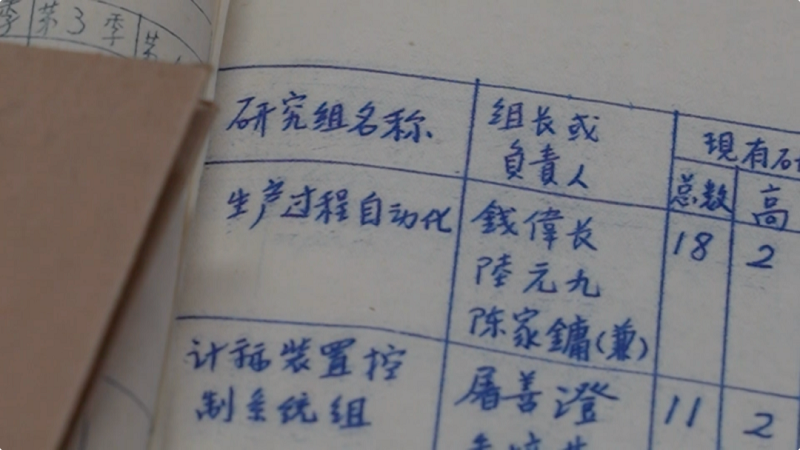 第3季
研究组名称
组长或
負責人
现有研
总数
高
生产过程自动化
錢偉長
陸元九
陈家鏞(兼)
18
2
计标装置控
制系统组
屠善澄
11
2